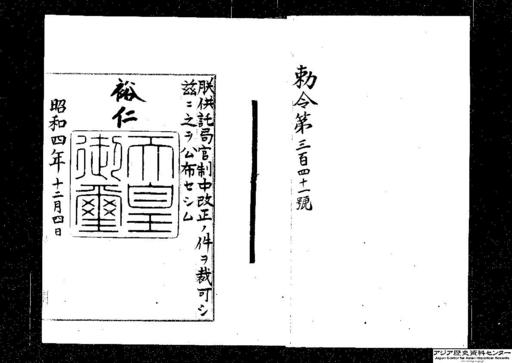 勅令第三百四十一號
朕供託局官制中改正ノ件ヲ裁可シ
茲ニ之ヲ公布セシム
裕仁
天皇
御璽
昭和四年十二月四日
アジア歴史資料センター
Japan Center for Asian Historical Records